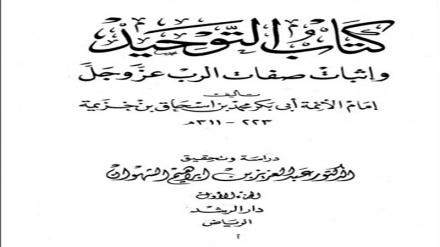 كتاب التوحيد
وإثبات صفات الرب عز وجل
تأليف
إمام الأئمة أبي بكر محمد بن إسحاق بن خزيمة
٢٢٣ - ٣١١ هـ
دراسة وتحقيق
الدكتور عبد العزيز بن إبراهيم الشهوان
الجزء الأول
دار الرشد
الرياض
أ